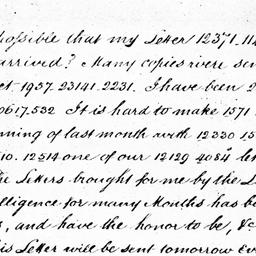 possible that my Letter 12371. 11
arrived? Many copies were sen
et. 1957. 23141. 2231. I have been 2
0617. 532 It is hard to make 1571
nning of last month with 12330 15
10. 12514 one of our 12129 4084 let
he Letters brought for me by the L
lligence for many Months has be
s, and have the honor to be, &c
is Letter will be sent tomorrow Eve